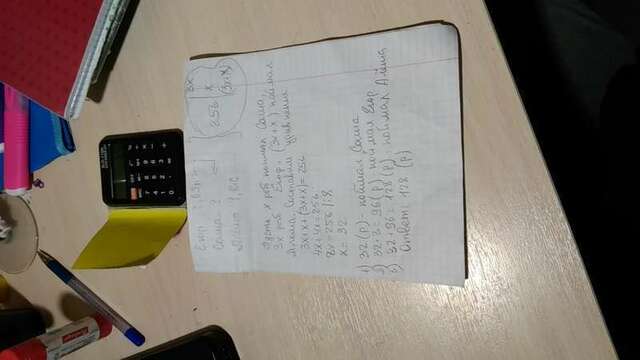 Егор
Саша ?
256
3x
x
(3x+x)
Пусть x рыб поймал Саша,
3x рыб Егор, (3x+x) поймал
Алёша. Составим уравнение
3x+x+(3x+x)=256
4x+4x=256
8x=256 |:8
x=32
1) 32 (р) - поймал Саша
2) 32·3=96 (р) - поймал Егор
3) 32+96=128 (р) - поймал Алёша
Ответ: 128 (р)